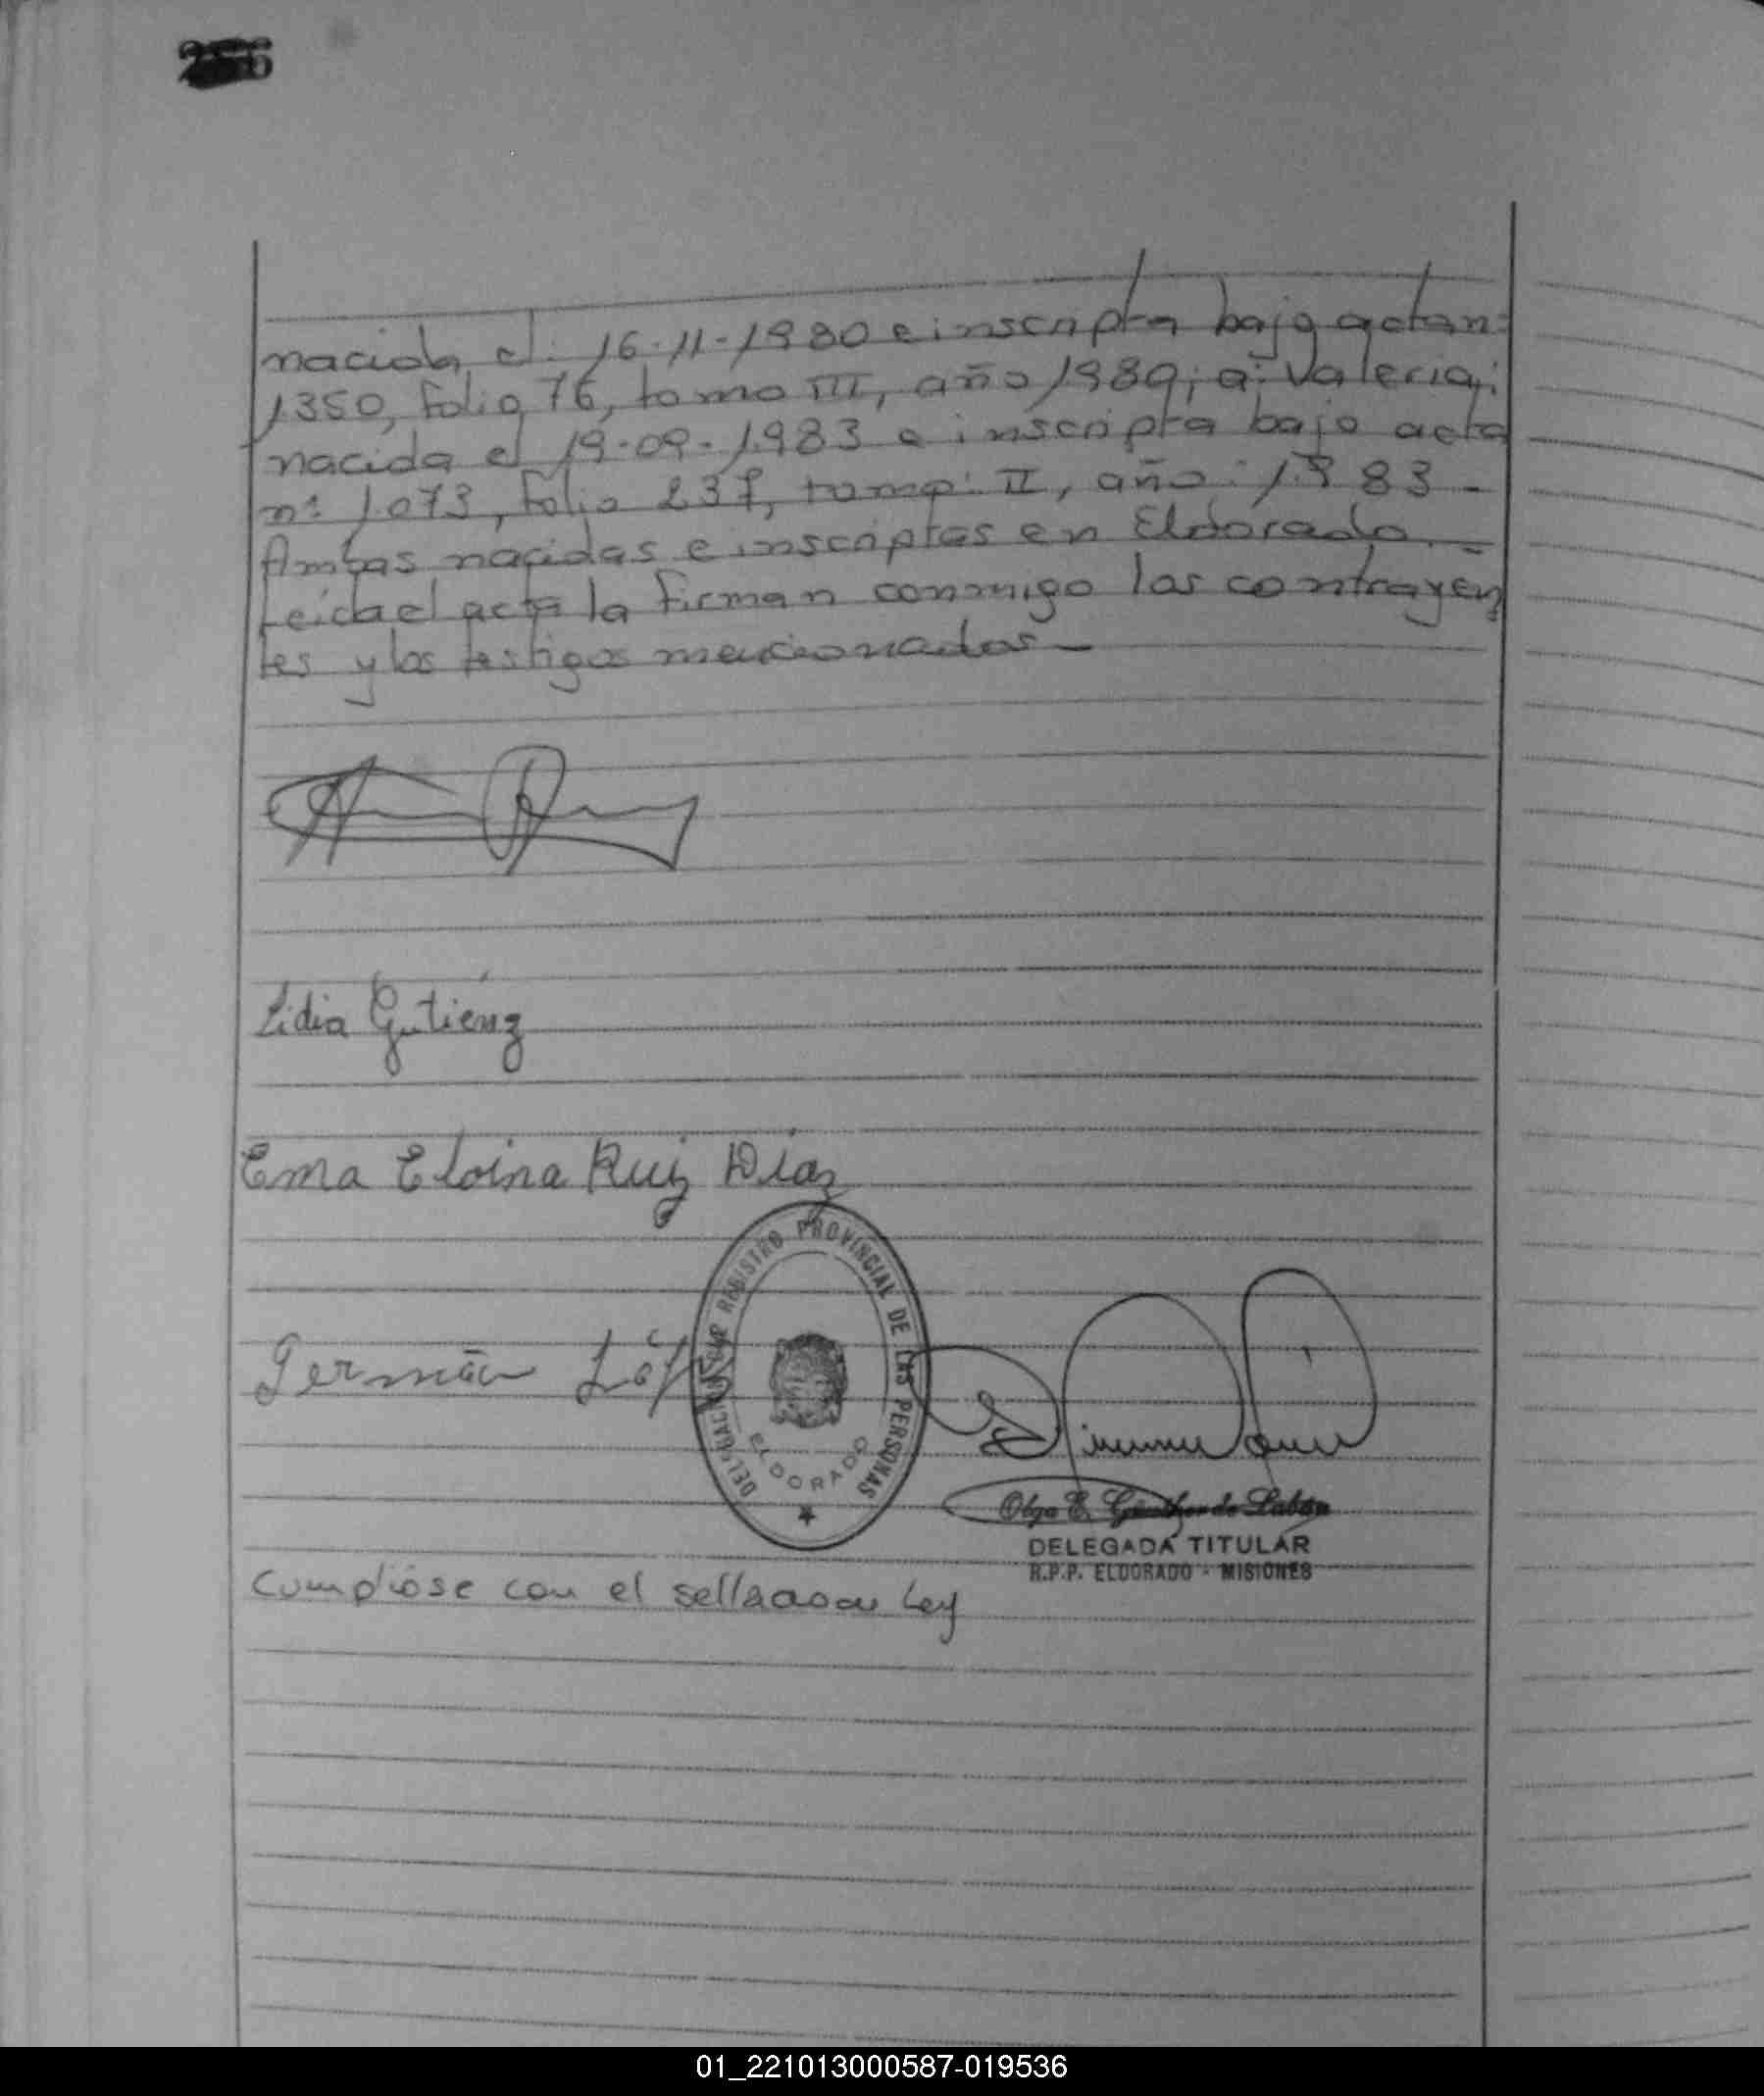 nacida el: 16-11-1980 e inscripta bajo acta n:
1350, folio 76, tomo III, año 1980; a: Valeria,
nacida el 19-09-1983 e inscripta bajo acta
n: 1.073, folio 237, tomo: II, año: 1983 -
Ambas nacidas e inscriptas en Eldorado. -
Leida el acta la firman conmigo los contrayen
tes y los testigos mencionados -
Lidia Gutiérrez
Ema Eloina Ruiz Díaz
REGISTRO PROVINCIAL DE LAS PERSONAS
Germán
ELDORADO
Olga E.
DELEGADA TITULAR
R.P.P. ELDORADO - MISIONES
Cumpliose con el sellado Ley
01_221013000587-019536